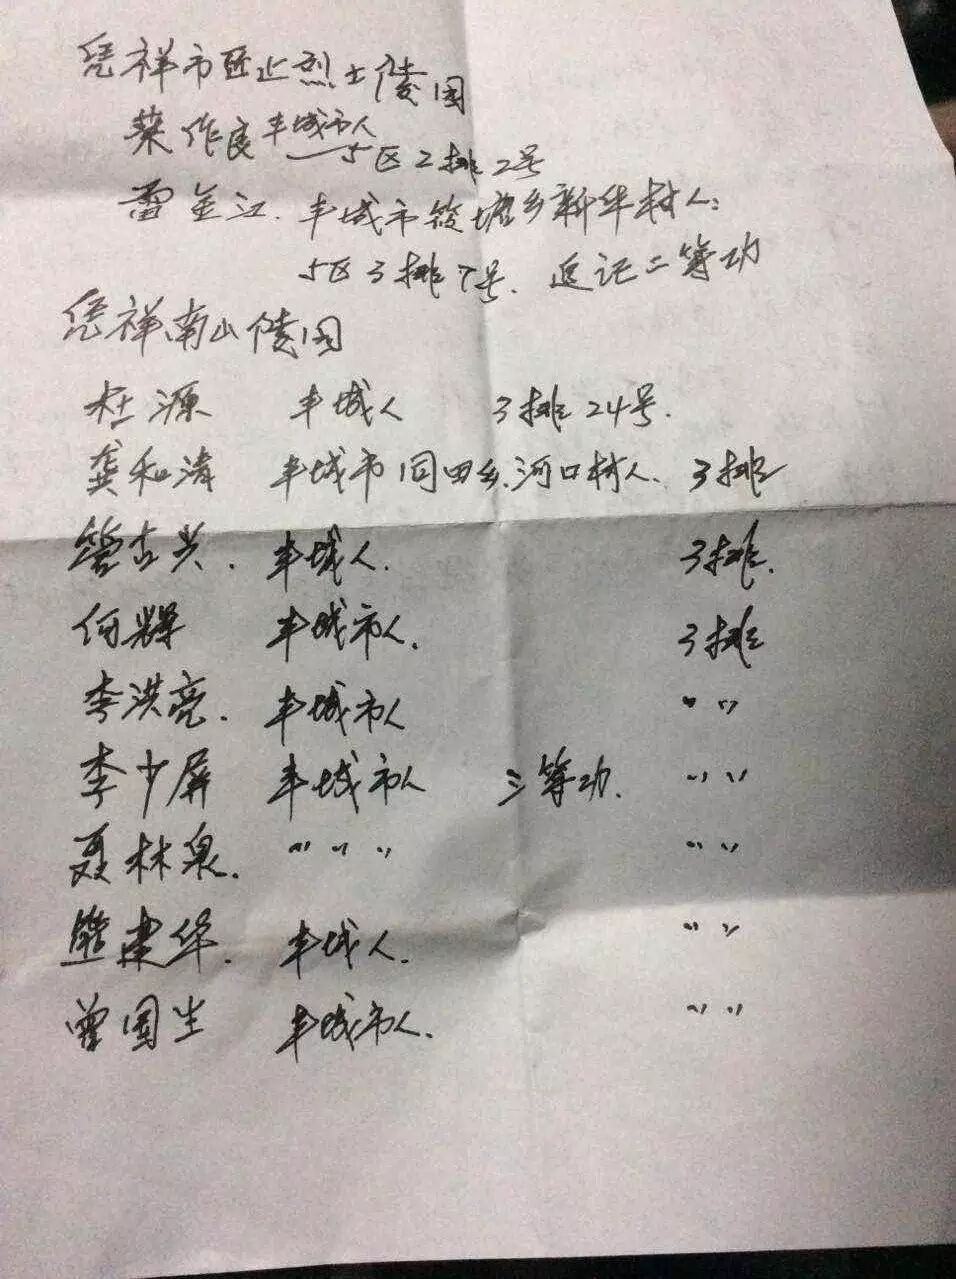 凭祥市匠止烈士陵园
蔡作良丰城市人
5区2排2号
雷金江.丰城市筱塘乡新华村人:
5区3排7号.追记二等功
凭祥南山陵园
杜源 丰城人 3排24号.
龚和清 丰城市同田乡.河口村人. 3排
管古兴. 丰城人. 3排.
何辉 丰城市人. 3排
李洪亮. 丰城市人 〃 〃
李少屏 丰城市人 三等功. 〃 〃
聂林泉. 〃 〃 〃 〃 〃
熊建华. 丰城人. 〃 〃
曾国生 丰城市人. 〃 〃